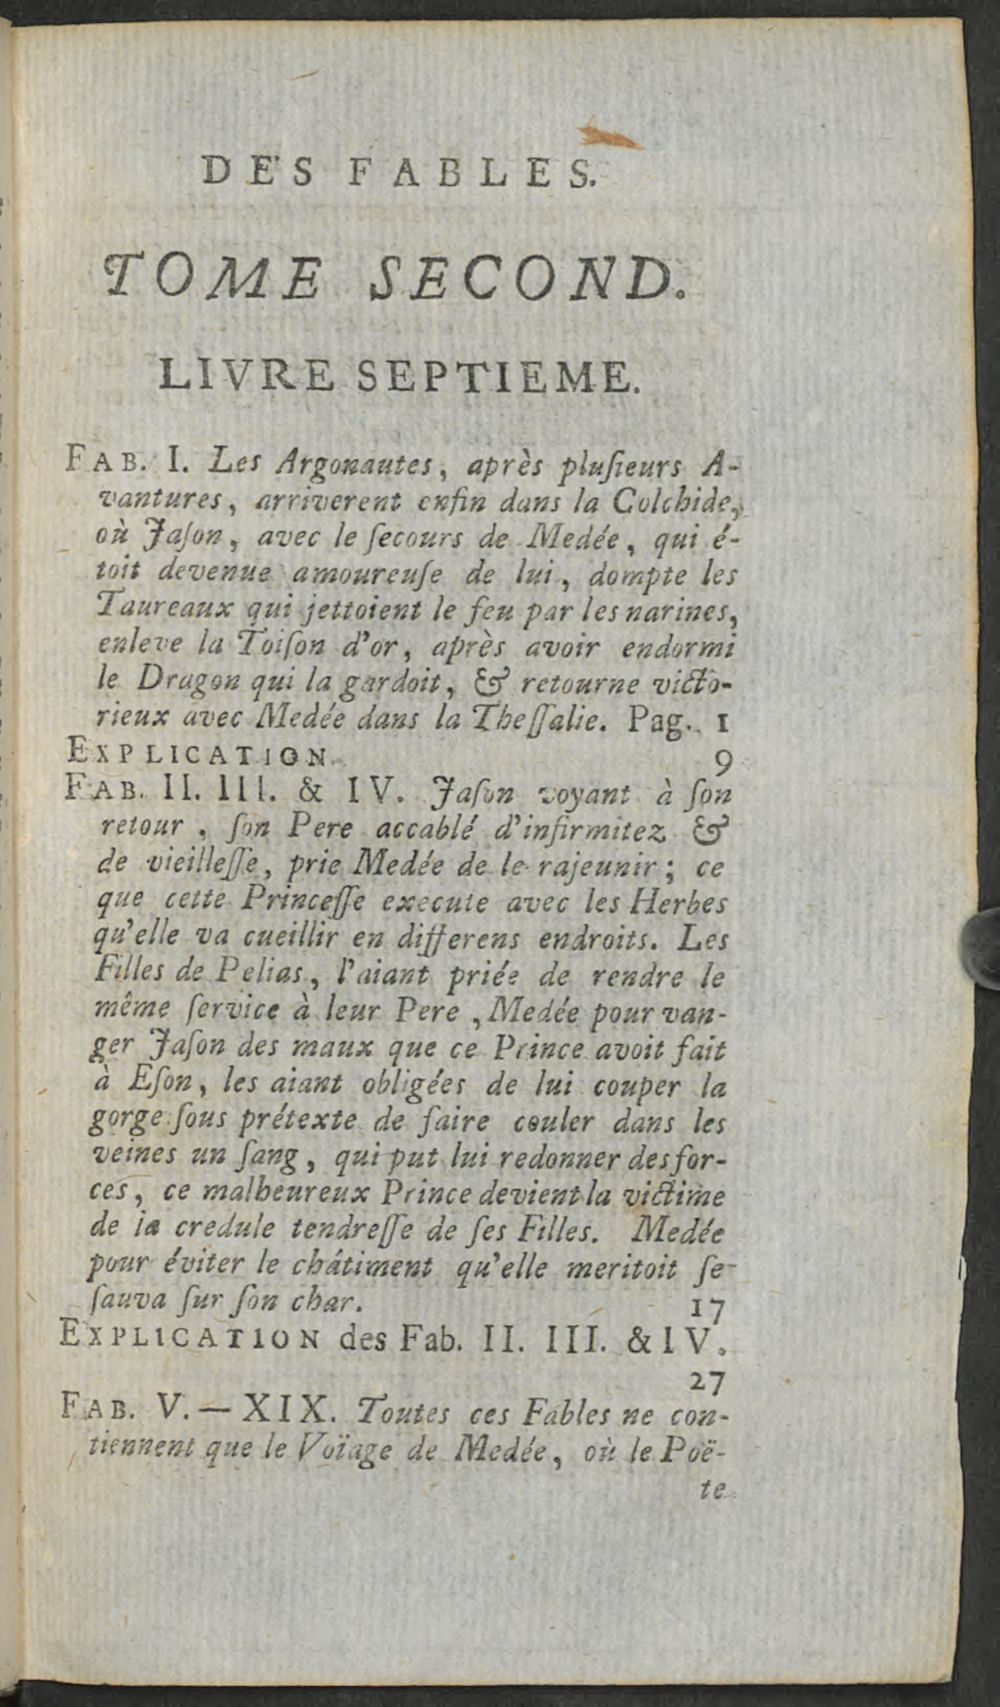 DES FABLES.
TOME SECOND.
LIVRE SEPTIEME.
FAB. I. Les Argonautes, après pluſieurs A-
vantures, arriverent enfin dans la Colchide,
où Jaſon, avec le ſecours de Medée, qui é-
toit devenue amoureuſe de lui, dompte les
Taureaux qui jettoient le feu par les narines,
enleve la Toiſon d'or, après avoir endormi
le Dragon qui la gardoit, & retourne victo-
rieux avec Medée dans la Theſſalie. Pag. 1
EXPLICATION. 9
FAB. II. III. & IV. Jaſon voyant à ſon
retour, ſon Pere accablé d'infirmitez &
de vieilleſſe, prie Medée de le rajeunir; ce
que cette Princeſſe execute avec les Herbes
qu'elle va cueillir en differens endroits. Les
Filles de Pelias, l'aiant priée de rendre le
même ſervice à leur Pere, Medée pour van-
ger Jaſon des maux que ce Prince avoit fait
à Eſon, les aiant obligées de lui couper la
gorge ſous prétexte de faire couler dans les
veines un ſang, qui put lui redonner des for-
ces, ce malheureux Prince devient la victime
de la credule tendreſſe de ſes Filles. Medée
pour éviter le châtiment qu'elle meritoit ſe
ſauva ſur ſon char. 17
EXPLICATION des Fab. II. III. & IV.
27
FAB. V.—XIX. Toutes ces Fables ne con-
tiennent que le Voïage de Medée, où le Poë-
te